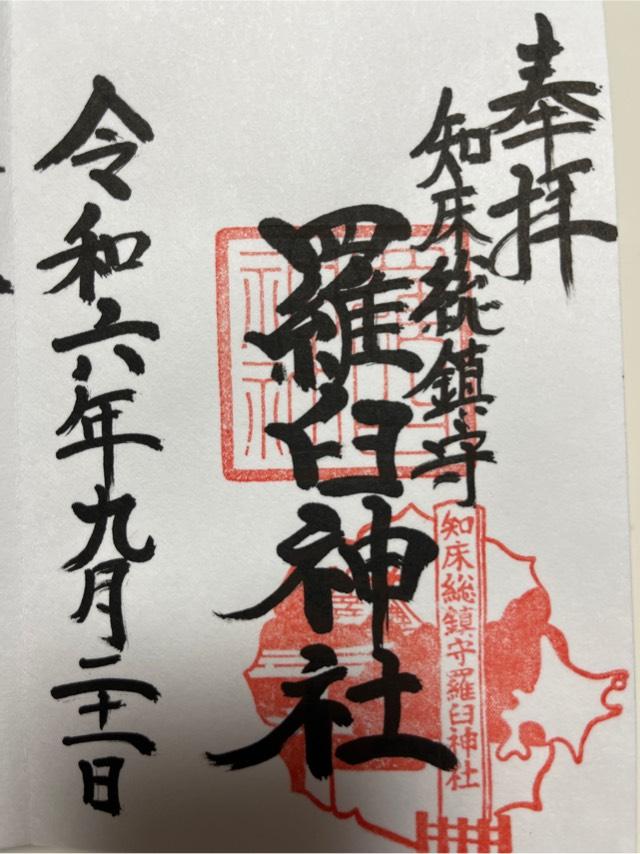 奉拝
知床総鎮守
羅臼神社
令和六年九月二十一日
知床総鎮守羅臼神社